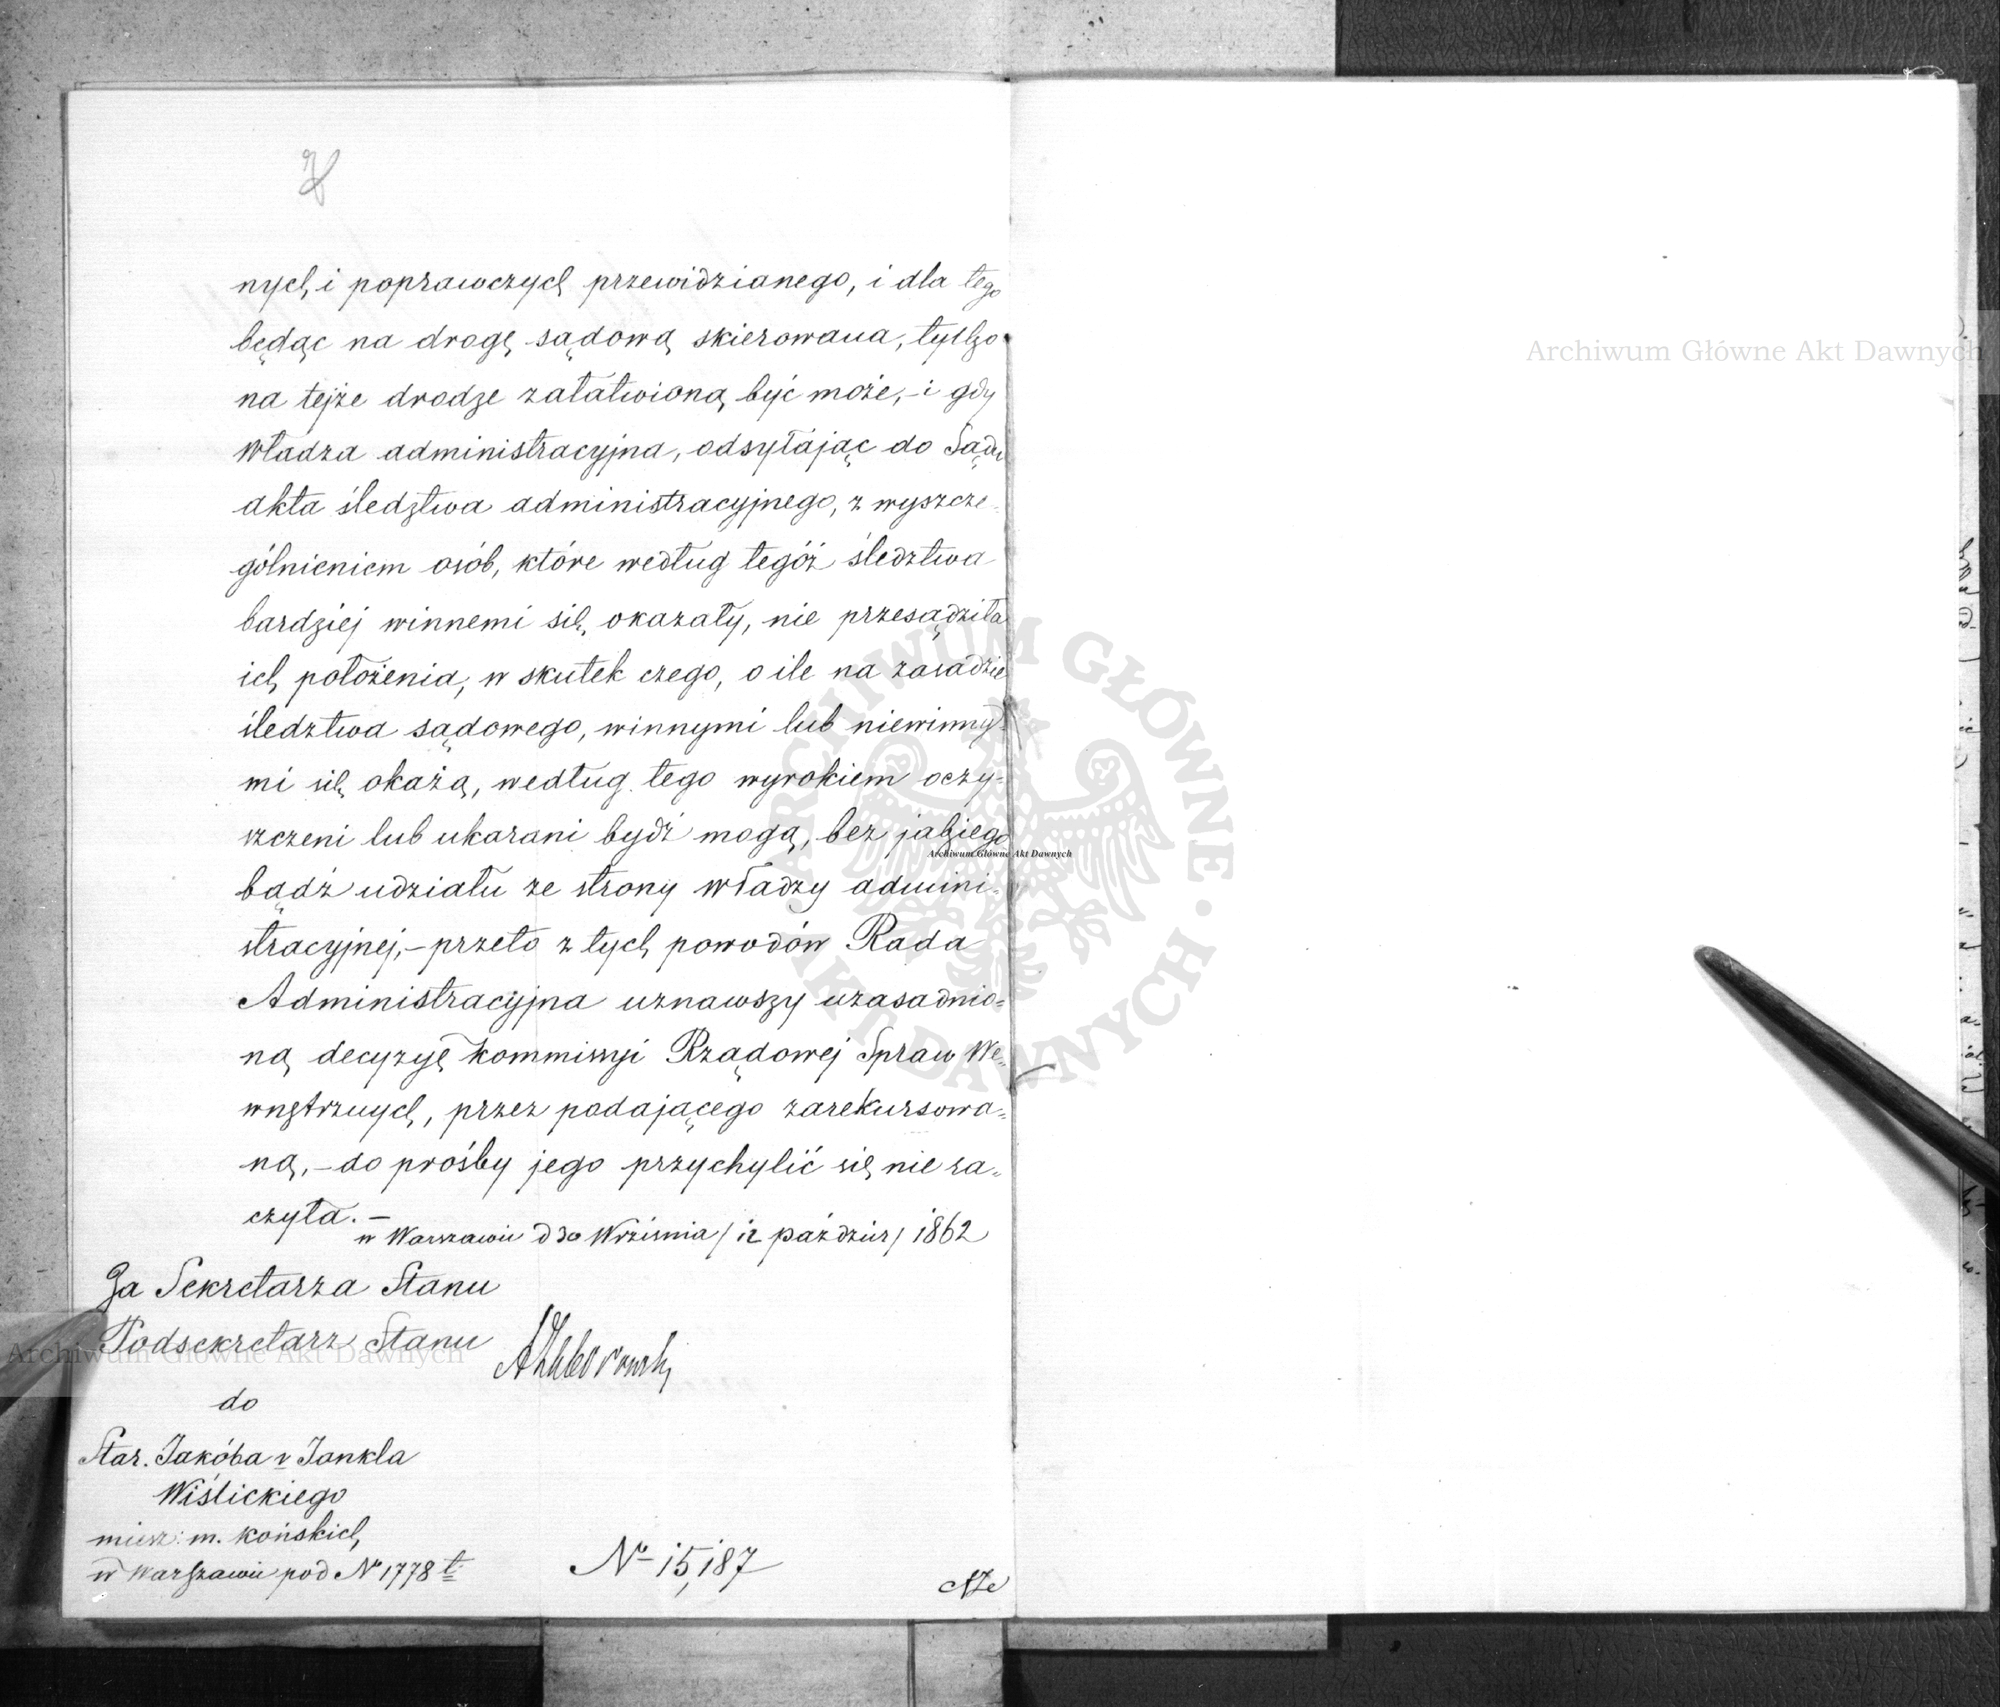 nych i poprawczych przewidzianego, i dla tego
będąc na drogę sądową skierowana, tylko
na tejże drodze załatwioną być może, – i gdy
Władza administracyjna, odsyłając do Sądu
akta śledztwa administracyjnego, z wyszcze
gólnieniem osób, które według tegóż śledztwa
bardziej winnemi się okazały, nie przesądziła
ich położenia; w skutek czego, o ile na zasadzie
śledztwa sądowego, winnymi lub niewinny-
mi się okażą, według tego wyrokiem oczy-
szczeni lub ukarani bydź mogą, bez jakiego
bądź udziału ze strony władzy admini-
stracyjnej, – przeto z tych powodów Rada
Administracyjna uznawszy uzasadnio=
ną decyzyę Kommissyi Rządowej Spraw We=
wnętrznych, przez podającego zarekursowa=
ną, – do prośby jego przychylić się nie ra=
czyła. –
w Warszawie d 30 Września / 12 paździer / 1862
Za Sekretarza Stanu
Podsekretarz Stanu
do
Star. Jakóba v Jankla
Wiślickiego
miesz: m. Końskich
w Warszawie pod No 1778 t
No 15,187
Archiwum Główne Akt Dawnych
Archiwum Główne Akt Dawnych
Archiwum Główne Akt Dawnych
ARCHIWUM GŁÓWNE · AKT DAWNYCH ·